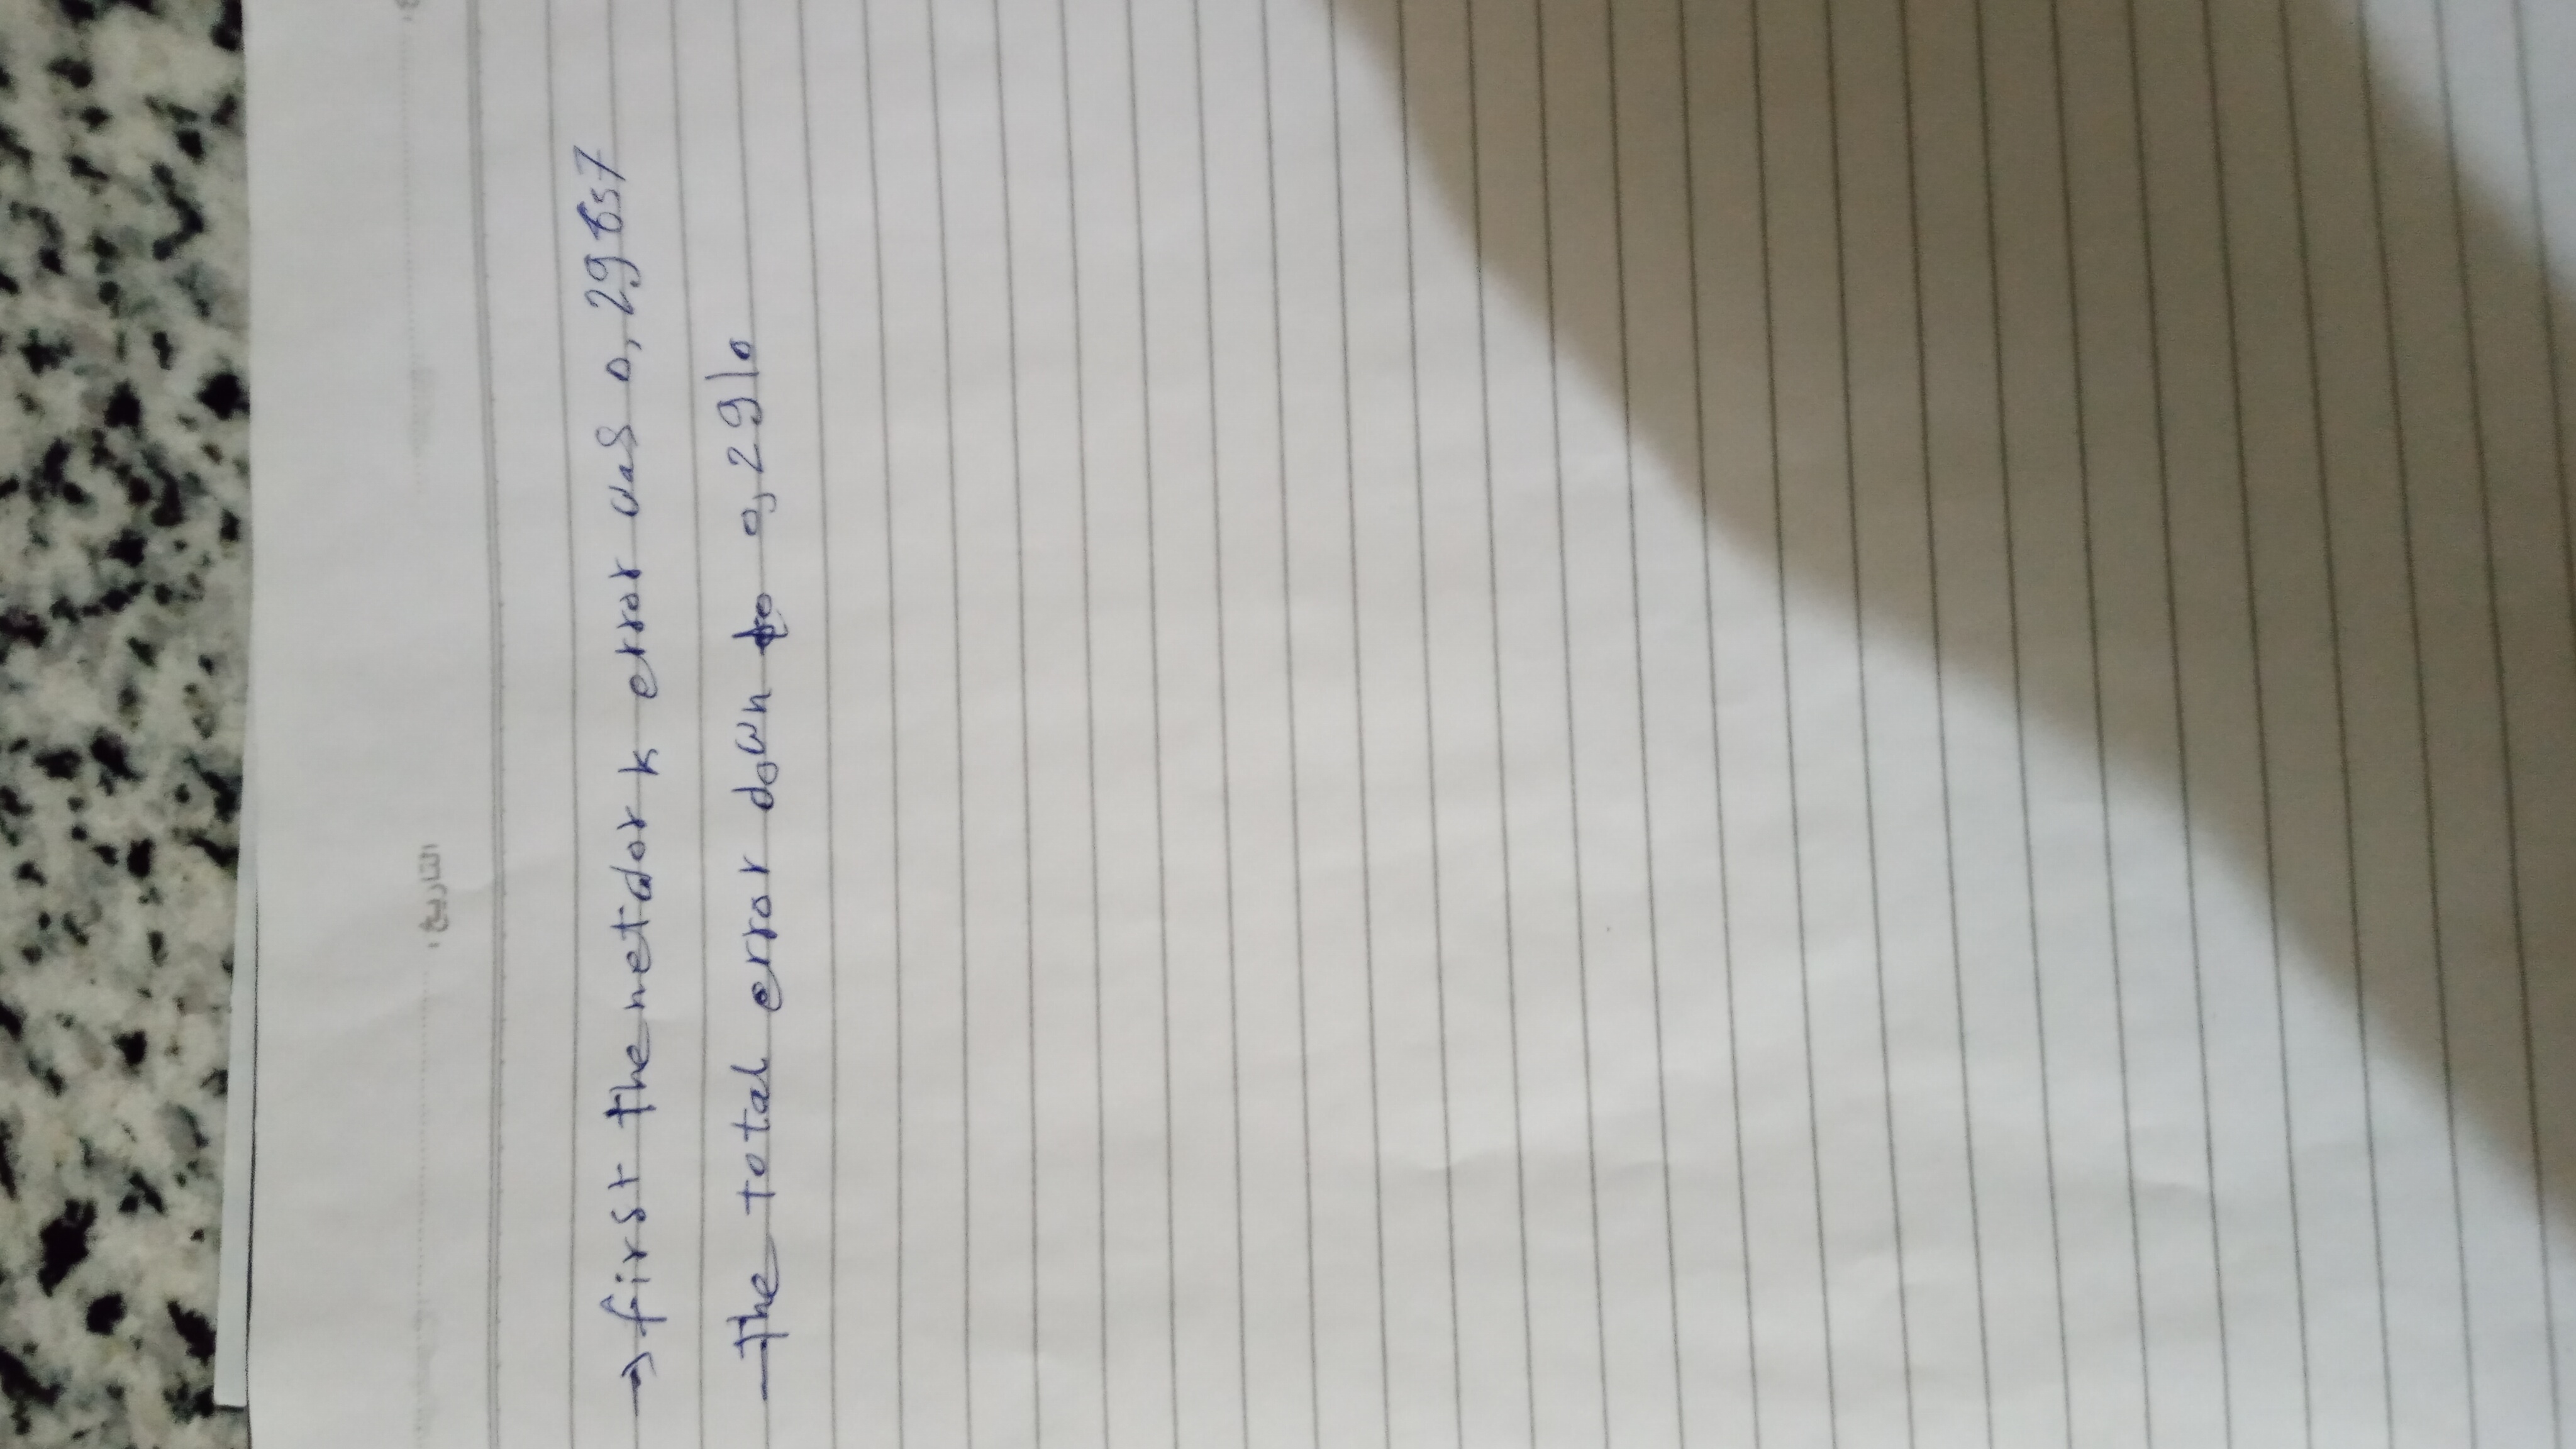 التاريخ :
→ first the network error was 0,29857
The total error down to 0,2910